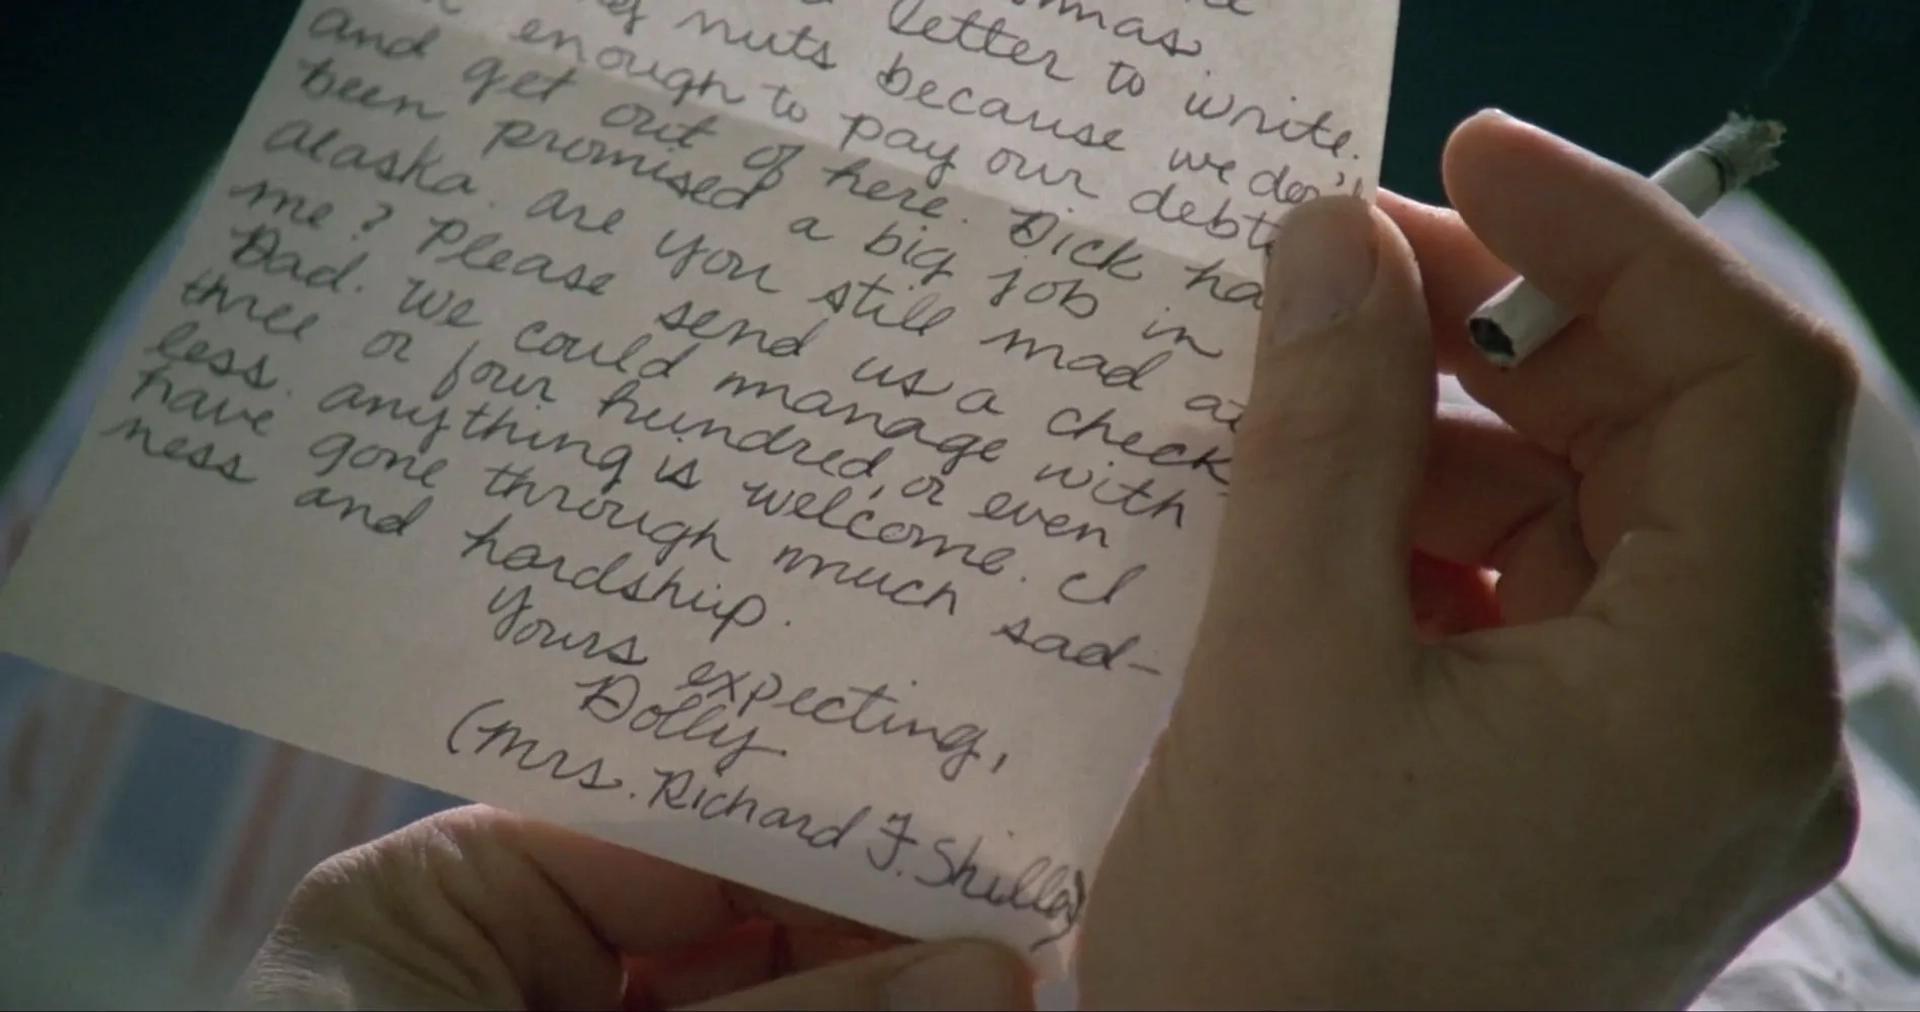 mas.
letter to write.
nuts because we don't
enough to pay our debts
and get out of here. Dick ha
been promised a big job in
Alaska. Are you still mad at
me? Please send us a check
Dad. We could manage with
three or four hundred, or even
less. anything is welcome. I
have gone through much sad-
ness and hardship.
Yours expecting,
Dolly.
(Mrs. Richard F. Skiller)